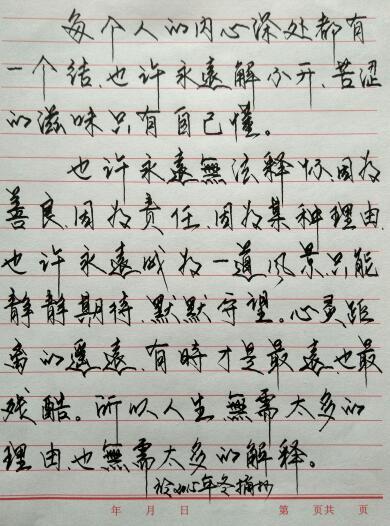 每个人的内心深处都有
一个结,也许永遠解不开,苦涩
的滋味只有自己懂。
也许永遠無法释怀,因为
善良,因为责任,因为某种理由,
也许永遠成为一道风景只能
静静期待,默默守望。心灵距
离的遥遠,有時才是最遠也最
残酷。所以人生無需太多的
理由,也無需太多的解释。
於2015年冬摘抄
年 月 日 第 页共 页